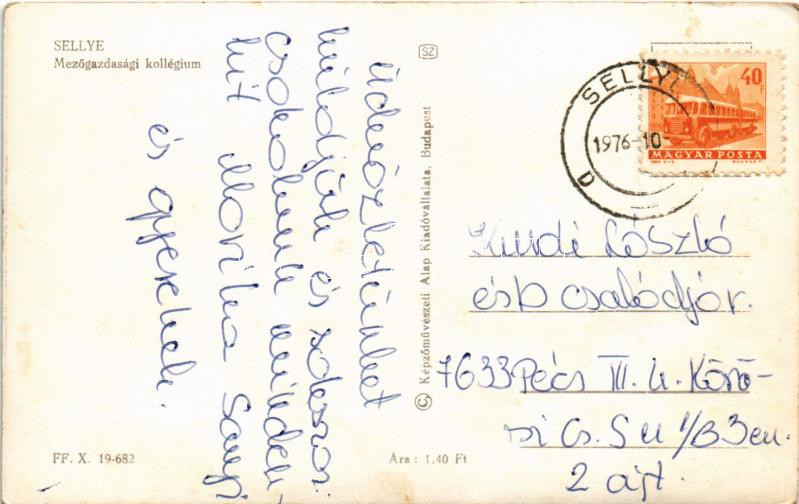 SELLYE
Mezőgazdasági kollégium
Üdvözletünket
küldjük és sokszor
csókolunk minden-
kit Morika Sanyi
és gyerekek.
SZ
© Képzőművészeti Alap Kiadóvállalata, Budapest
SELLYE
1976-10
D
40 f
MAGYAR POSTA
László
és b családjár.
7633 Pécs III. u. Kőrö-
si Cs. S u 1/B 3em.
2 ajt.
FF. X. 19-682
Ára : 1,40 Ft